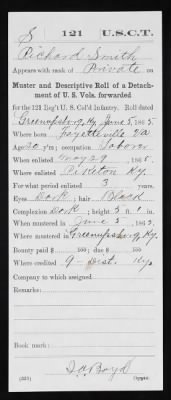 S 121 U.S.C.T.
Richard Smith
Appears with rank of Private on
Muster and Descriptive Roll of a Detach-
ment of U. S. Vols. forwarded
for the 121 Reg't U. S. Col'd Infantry. Roll dated
Greenupsburg, Ky June 5, 1865.
Where born Fayetteville Va
Age 20 y'rs; occupation Laborer
When enlisted May 29, 1865.
Where enlisted Piketon Ky.
For what period enlisted 3 years.
Eyes Dark; hair Black
Complexion Dark; height 5 ft. in.
When mustered in June 5, 1865.
Where mustered in Greenupsburg, Ky.
Bounty paid $ 100; due $ 100
Where credited 9 Dist. Ky.
Company to which assigned
Remarks:
Book mark:
Boyd